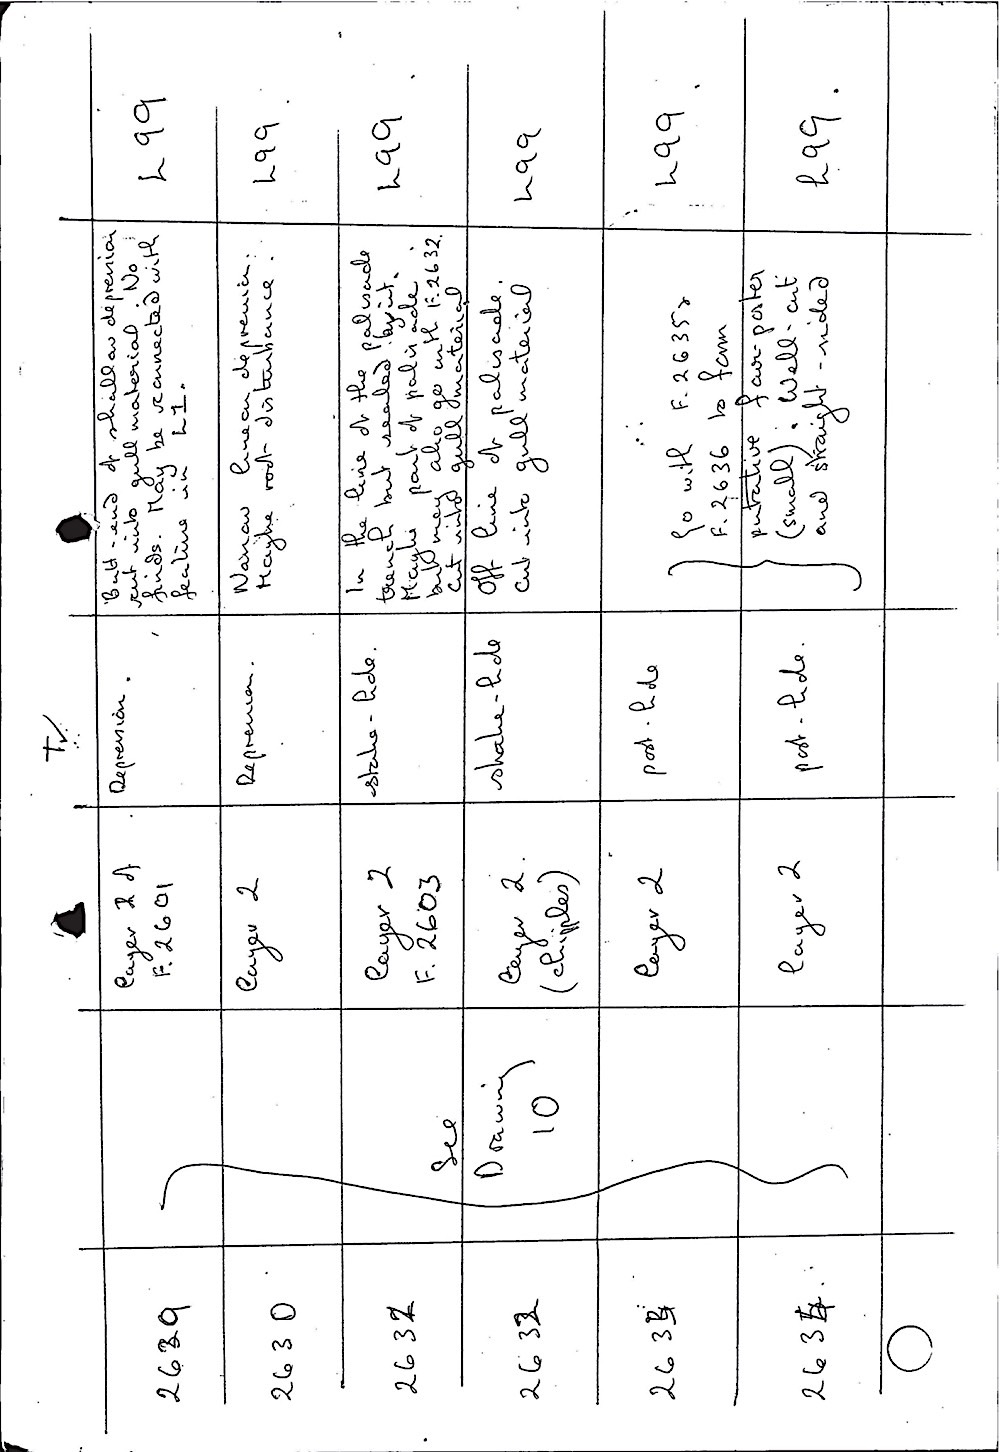 2629
See
Drawing
10
Layer 2 of
F. 2601
Depression.
Butt-end of shallow depression
cut into gull material. No
finds. May be connected with
feature in L1.
L99
2630
Layer 2
Depression.
Narrow linear depression.
Maybe root disturbance.
L99
263
Layer 2
F. 2603
stake-hole.
In the line of the palisade
trench but sealed by it.
Maybe part of palisade
but may also go with F. 2632.
cut into gull material
L99
263
Layer 2.
(chipples)
stake-hole
Off line of palisade.
cut into gull material
L99
263
Layer 2
post-hole
Go with F. 2635 &
F. 2636 to form
putative four-poster
(small). Well-cut
and straight-sided
L99
263
Layer 2
post-hole.
L99.